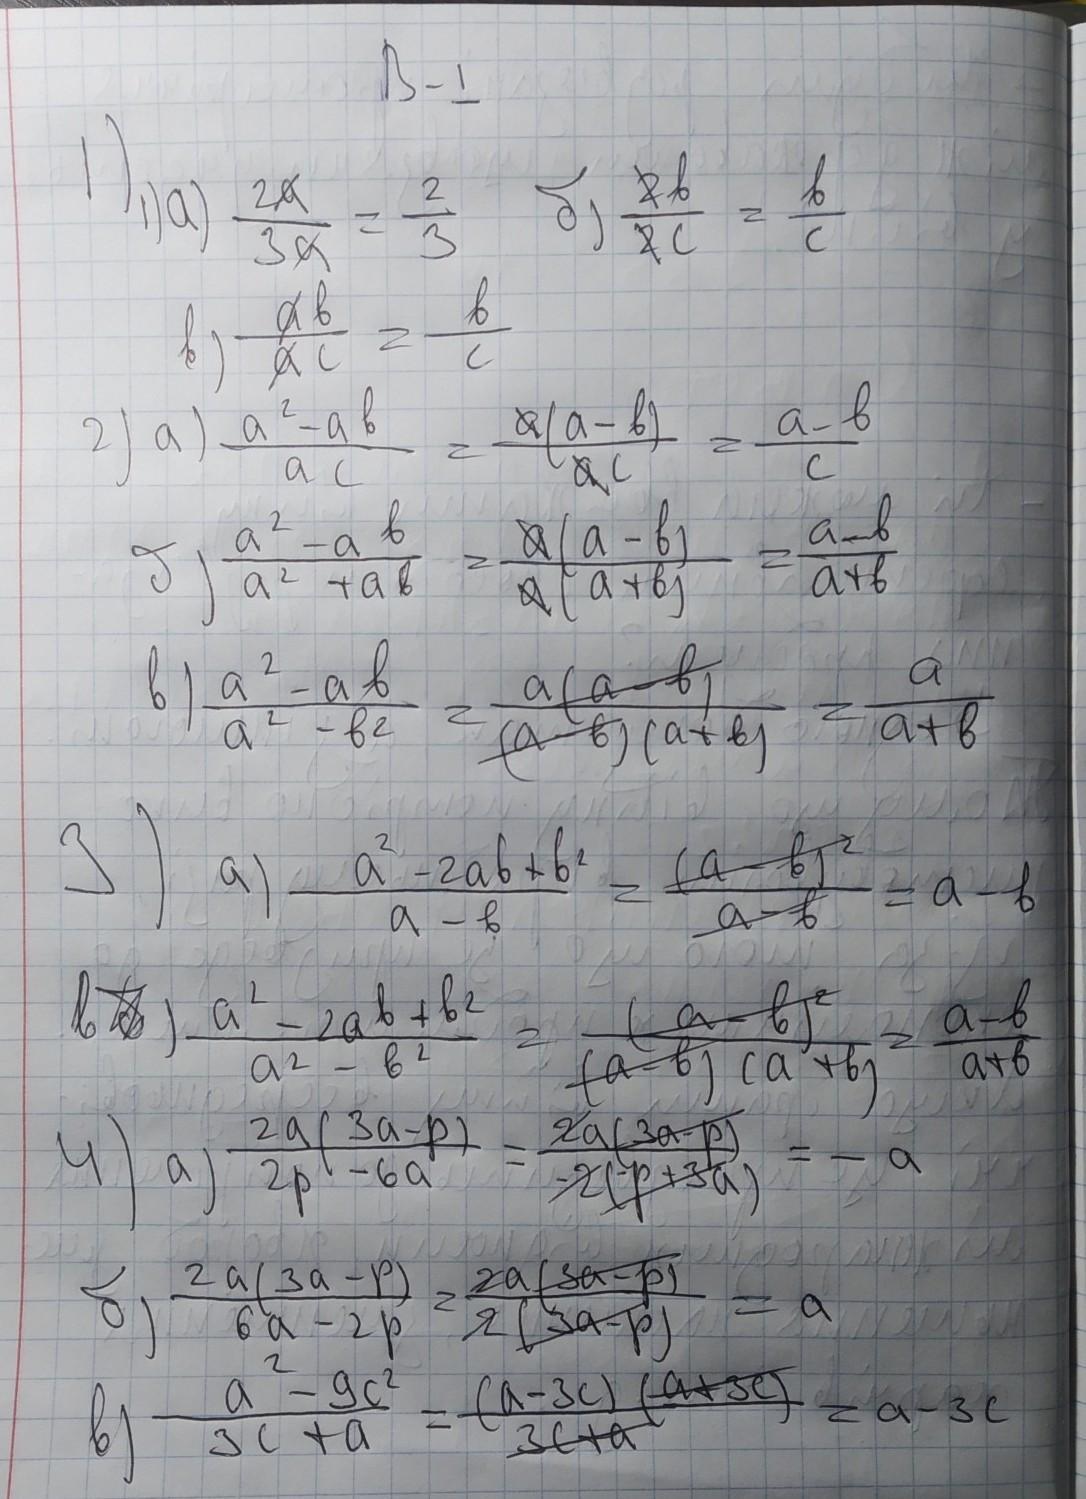 В-1
1) 1) а) 2a/3a = 2/3 б) 2b/2c = b/c
в) ab/ac = b/c
2) а) (a² - ab)/(ac) = a(a - b)/(ac) = (a - b)/c
б) (a² - ab)/(a² + ab) = a(a - b)/(a(a + b)) = (a - b)/(a + b)
в) (a² - ab)/(a² - b²) = a(a - b)/((a - b)(a + b)) = a/(a + b)
3) а) (a² - 2ab + b²)/(a - b) = (a - b)²/(a - b) = a - b
в) (a² - 2ab + b²)/(a² - b²) = (a - b)²/((a - b)(a + b)) = (a - b)/(a + b)
4) а) 2a(3a - p)/(2p - 6a) = 2a(3a - p)/(-2(-p + 3a)) = - a
б) 2a(3a - p)/(6a - 2p) = 2a(3a - p)/(2(3a - p)) = a
в) (a² - 9c²)/(3c + a) = (a - 3c)(a + 3c)/(3c + a) = a - 3c